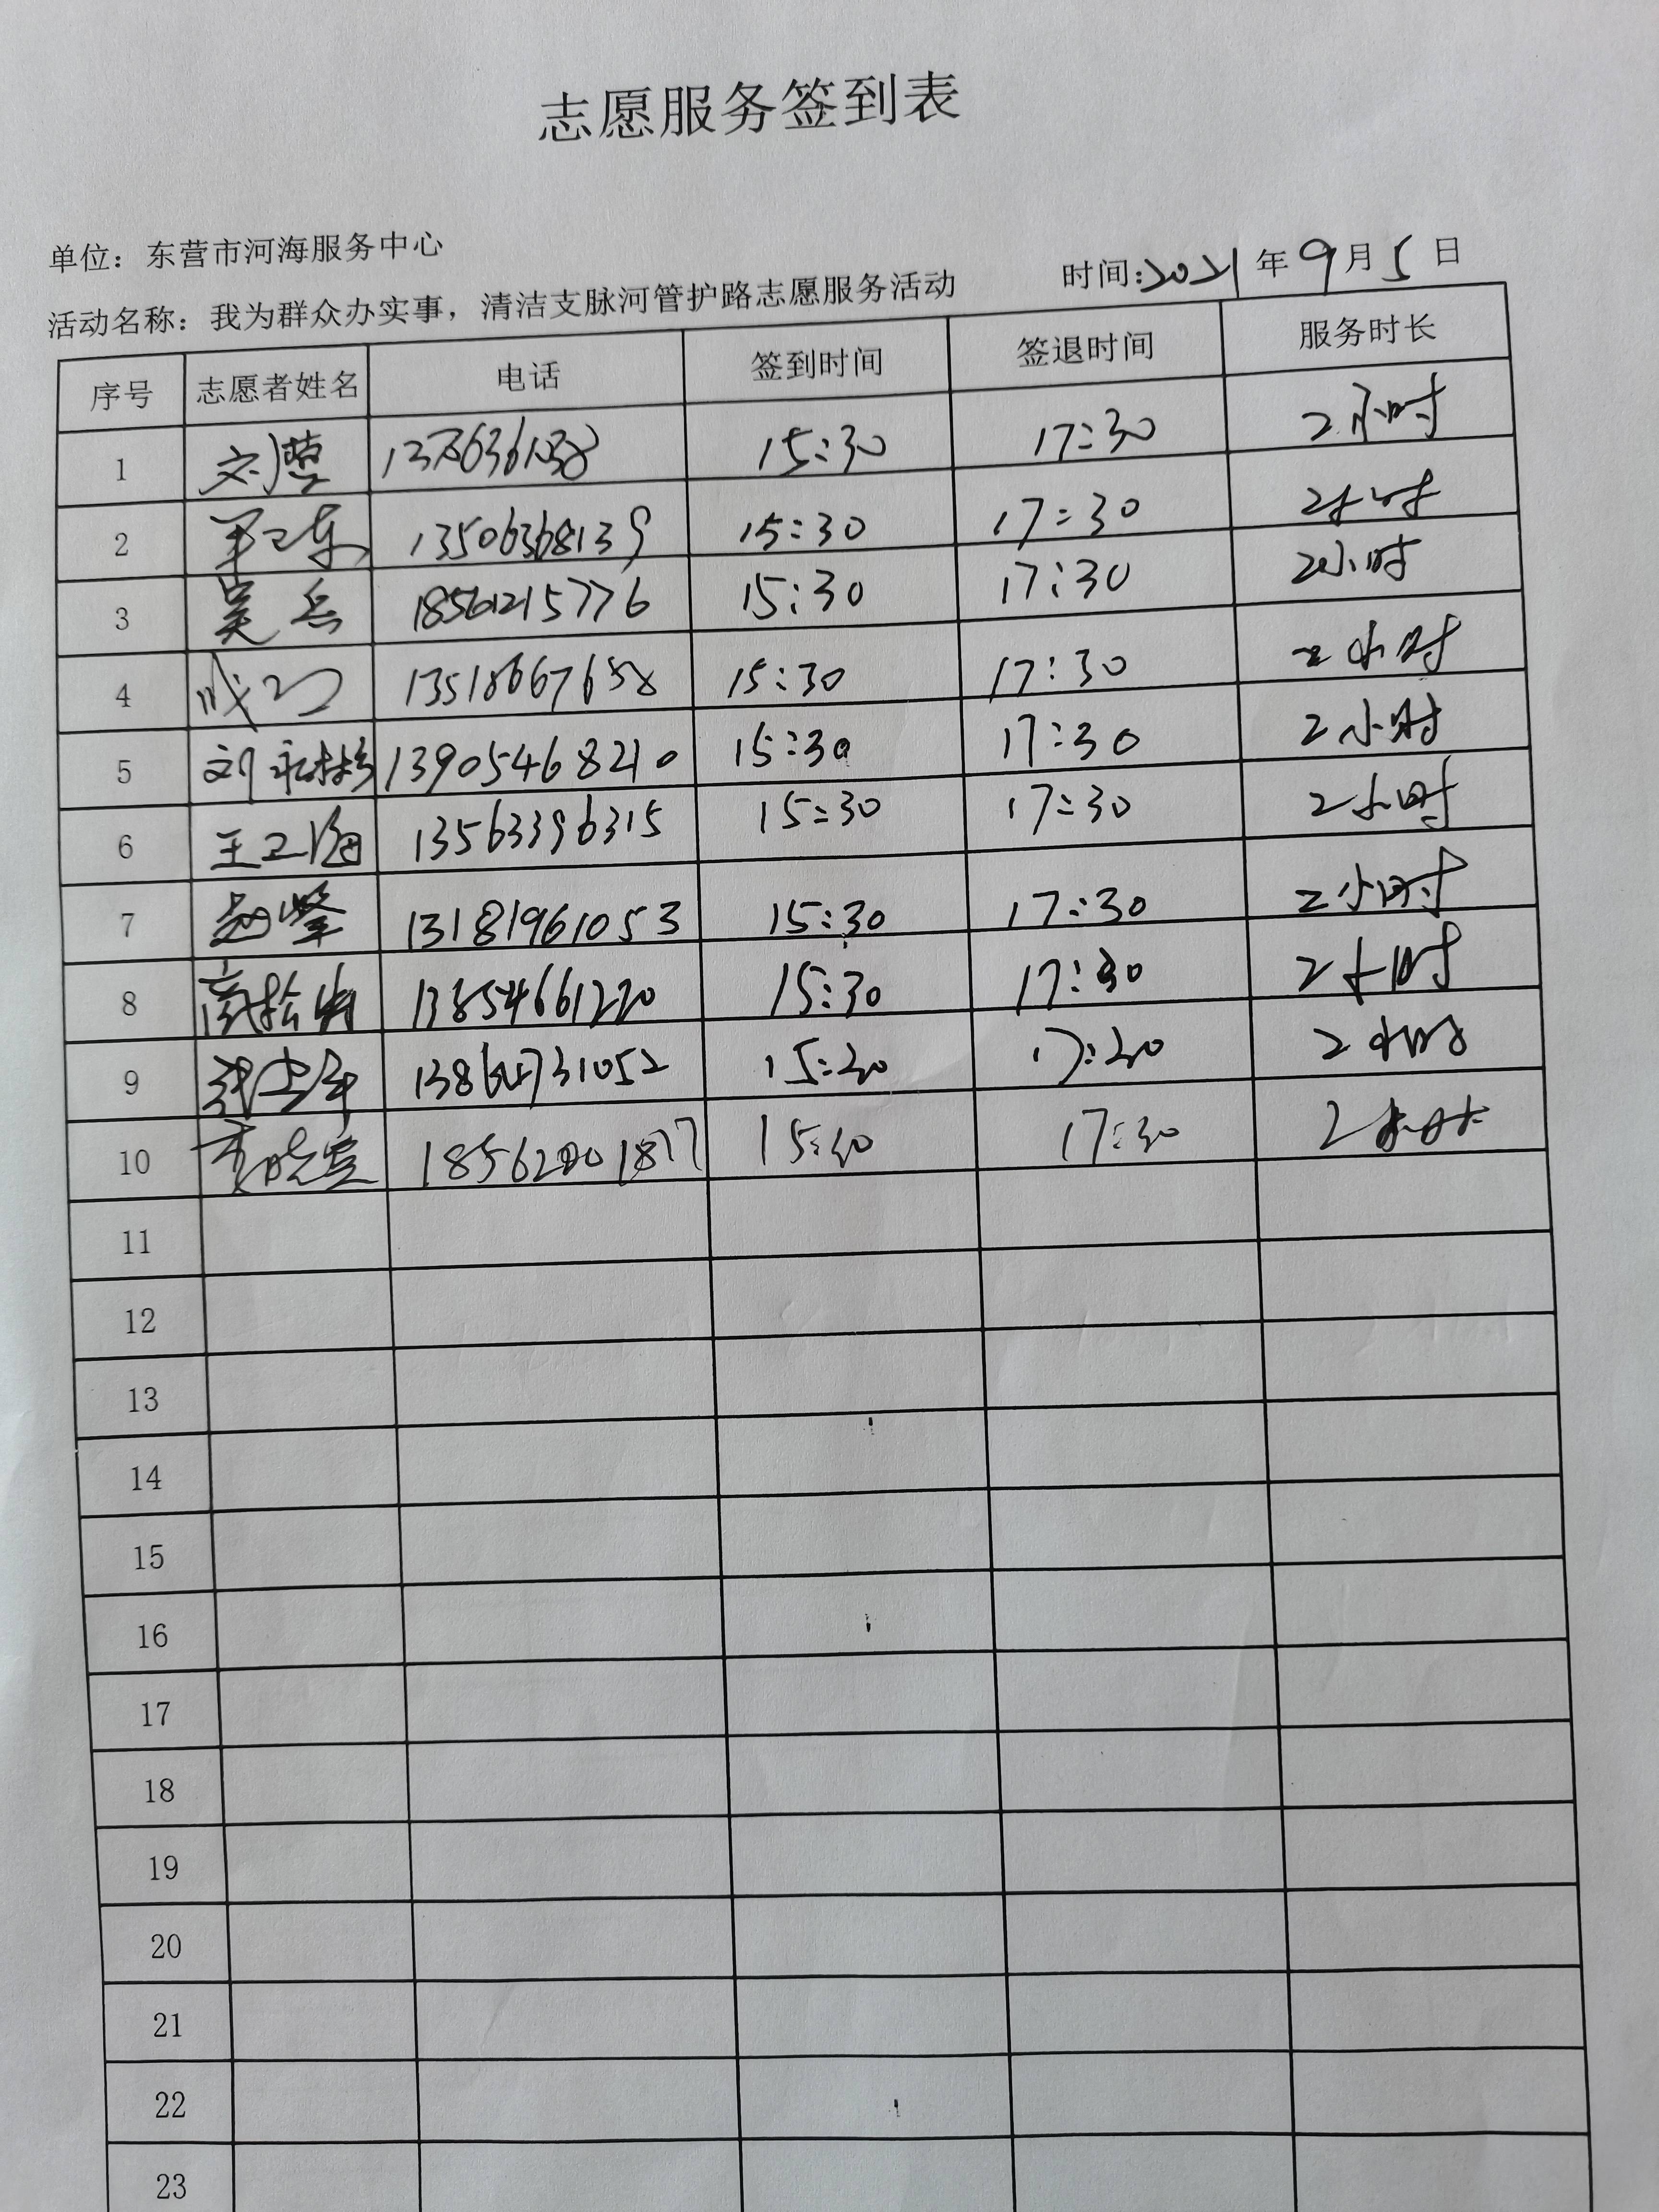 志愿服务签到表
单位：东营市河海服务中心
时间：2021年9月5日
活动名称：我为群众办实事，清洁支脉河管护路志愿服务活动
序号 志愿者姓名 电话 签到时间 签退时间 服务时长
1 15:30 17:30 2小时
2 13506368139 15:30 17:30 2小时
3 吴兵 18561215776 15:30 17:30 2小时
4 13518667658 15:30 17:30 2小时
5 13905468210 15:30 17:30 2小时
6 王卫海 13563396315 15:30 17:30 2小时
7 赵峰 13181961053 15:30 17:30 2小时
8 13854661220 15:30 17:30 2小时
9 13864731052 15:30 17:30 2小时
10 15:30 17:30 2小时
11
12
13
14
15
16
17
18
19
20
21
22
23